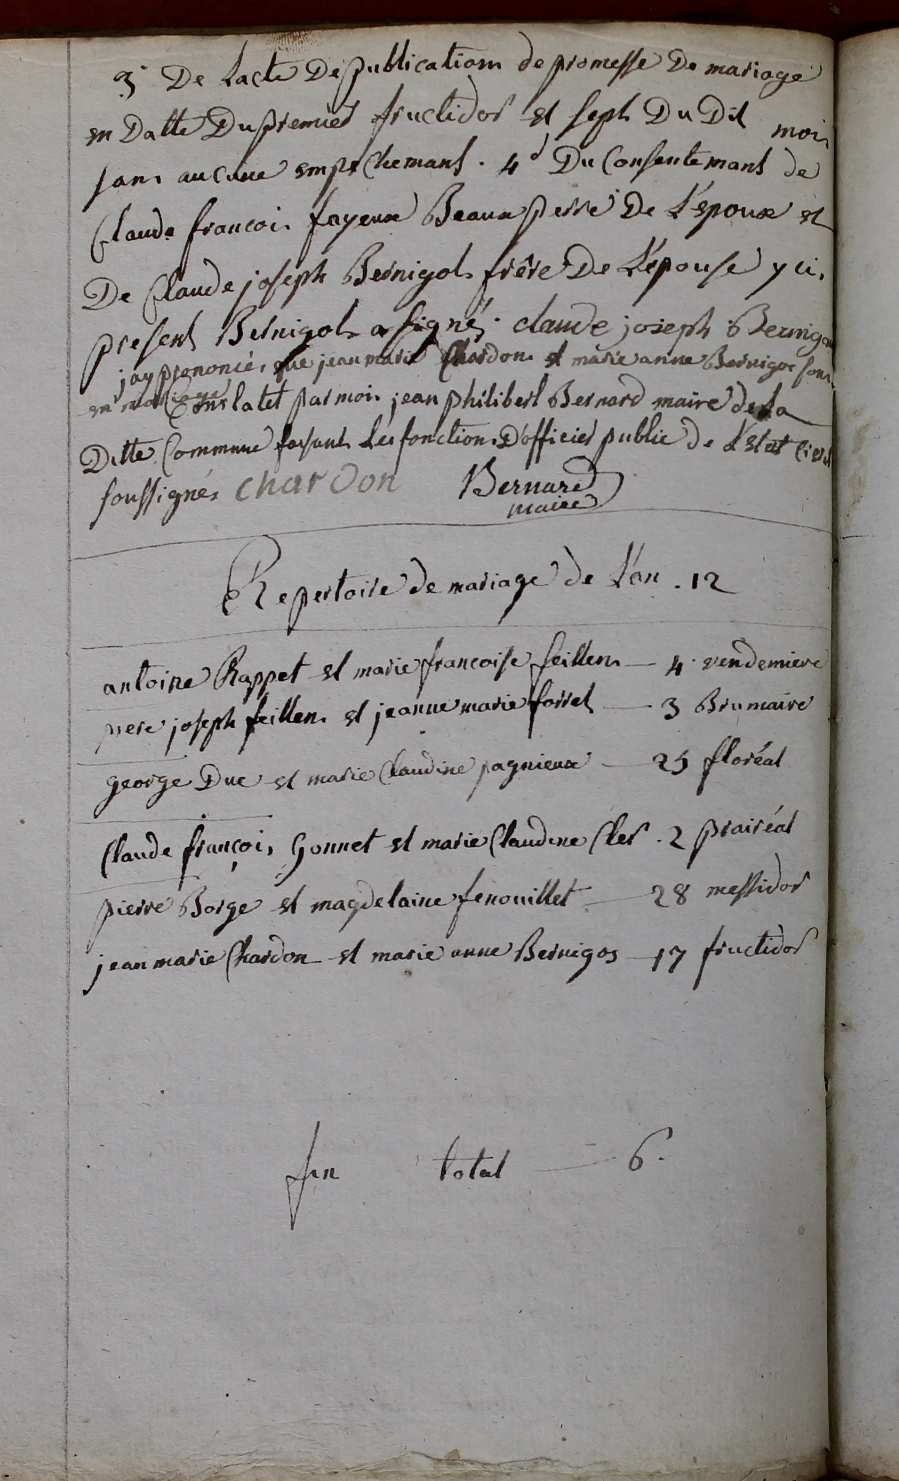 3. De Lacte De publication de promesse De mariage
en Datte Du premier fructidor et sept Du Dit mois
sans aucune empechemant. 4d Du Consentemant de
Claude françois fayeux Beaux perre De L'epoux et
De Claude joseph Bernigot frère De L'epouse yci.
present Bernigot a signé. claude joseph Bernigo
jay prononcé, que jean marie Chardon et marie anne Bernigos sons
en mariage
Constatet par moi jean philibert Bernard maire de La
Ditte Commune faisant Les fonctions D'officier public de L'etat Civil
soussignés chardon Bernard
maire
Repertoire de mariage de L'an. 12
antoine Rappet et marie francoise feillens — 4. vendemiere
pere joseph feillens et jeanne marie forret — 3 Brumaire
george Duc et marie Claudine pagnieux — 25 floréal
Claude françois Gonnet et marie Claudine Cler. 2 prairéal
pierre Borge et magdelaine fenouillet — 28 messidor
jean marie Chardon et marie anne Bernigos — 17 fructidor
fin total — 6.